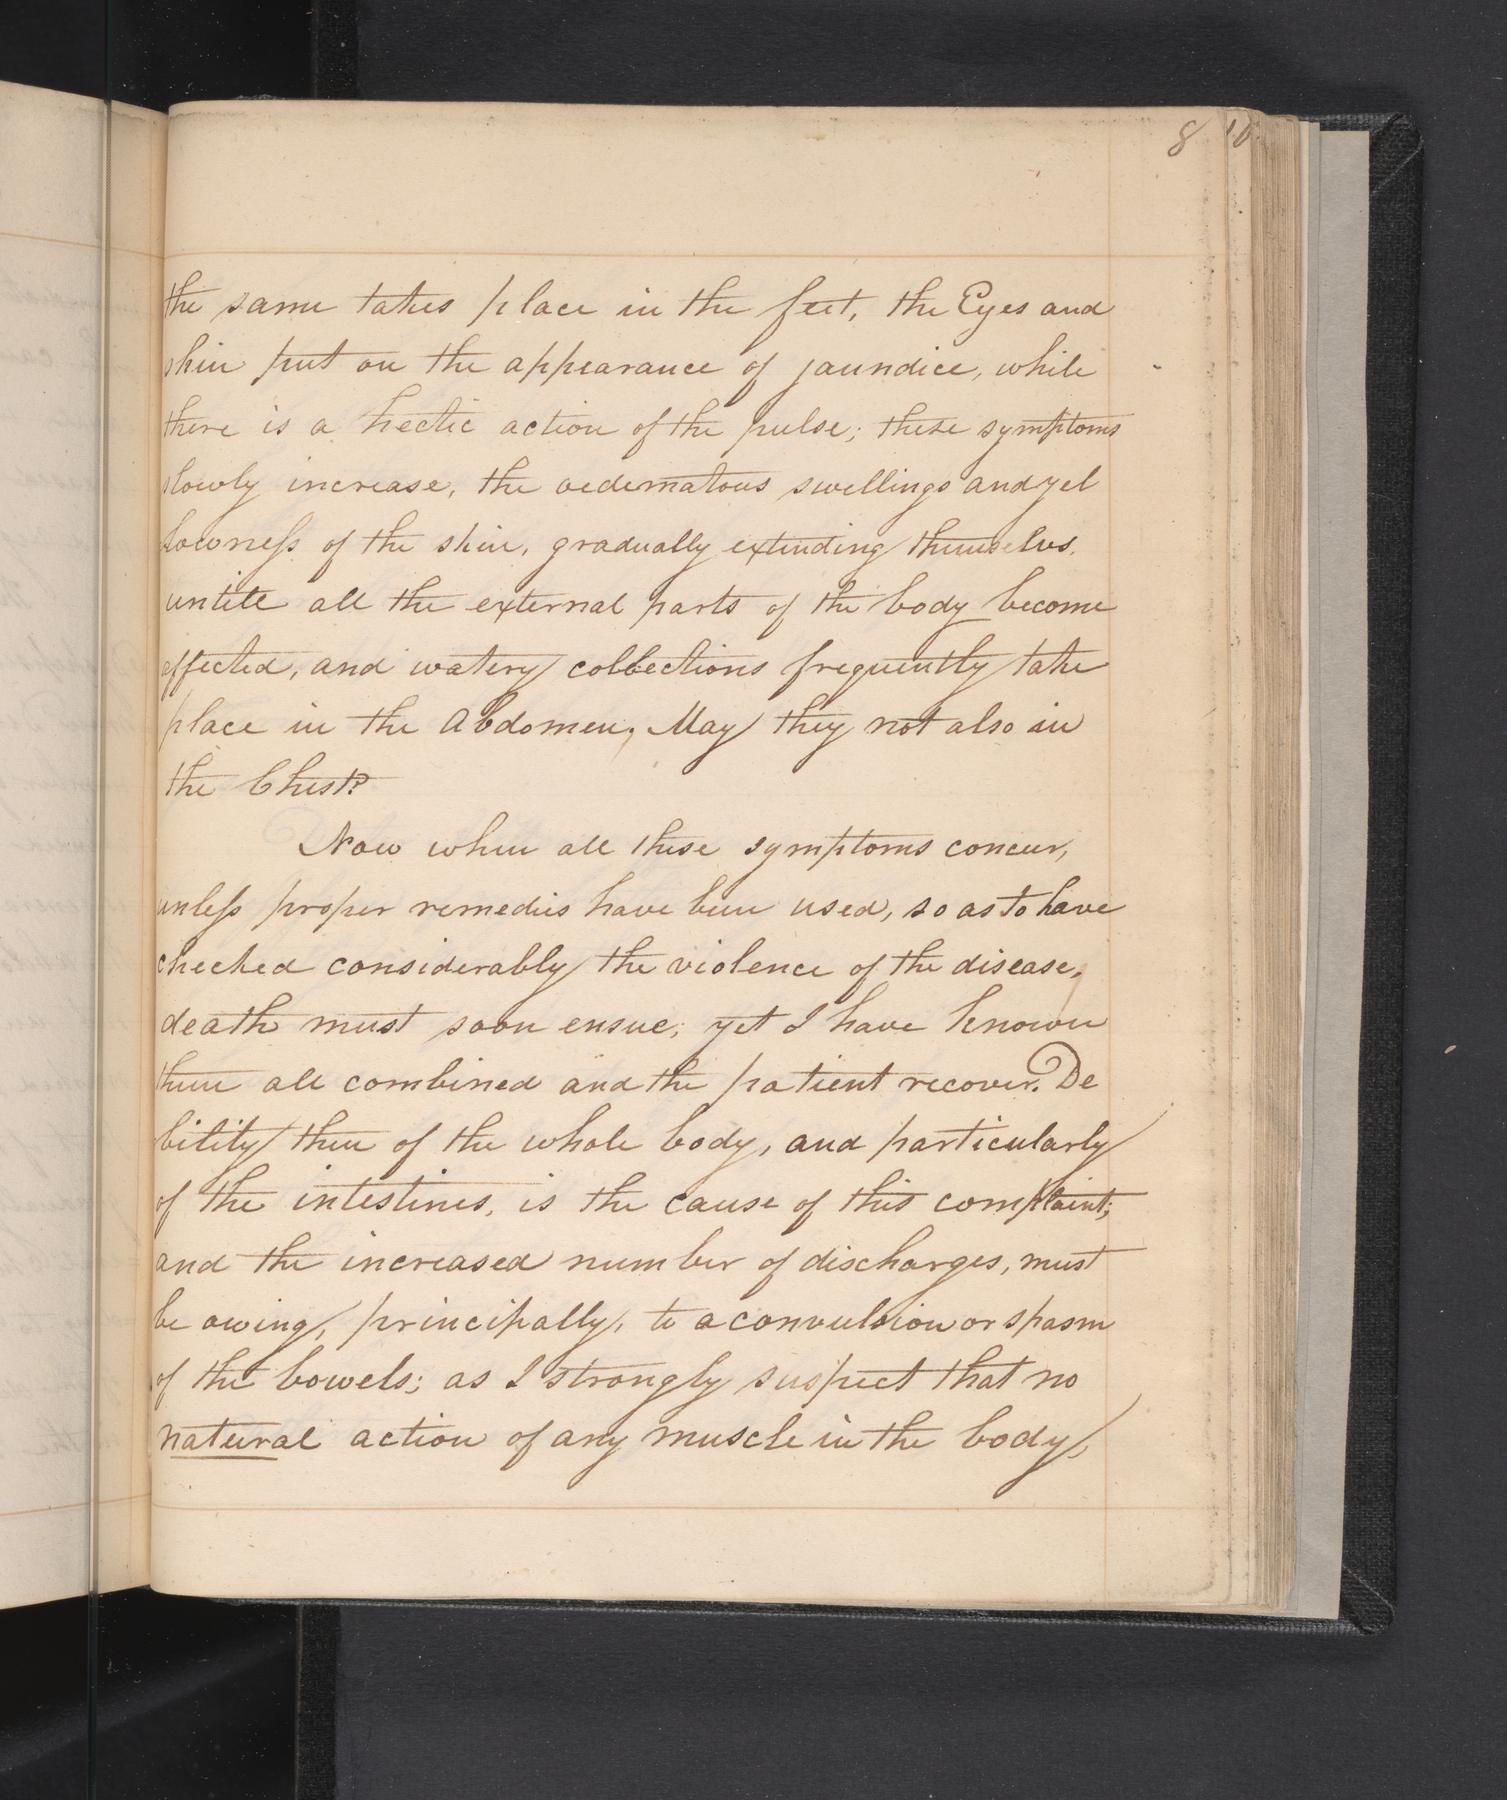 8 10
the same takes place in the feet, the Eyes and
skin put on the appearance of jaundice, while
there is a hectic action of the pulse; these symptoms
slowly increase, the oedematous swellings and yel
lowness of the skin, gradually extending themselves,
untill all the external parts of the body become
affected, and watery collections frequently take
place in the Abdomen; May they not also in
the Chest?
Now when all these symptoms concur,
unless proper remedies have been used, so as to have
checked considerably the violence of the disease,
death must soon ensue; yet I have known
them all combined and the patient recover. De
bility then of the whole body, and particularly
of the intestines, is the cause of this complaint;
and the increased number of discharges, must
be owing, principally, to a convulsion or spasm
of the bowels; as I strongly suspect that no
natural action of any muscle in the body,